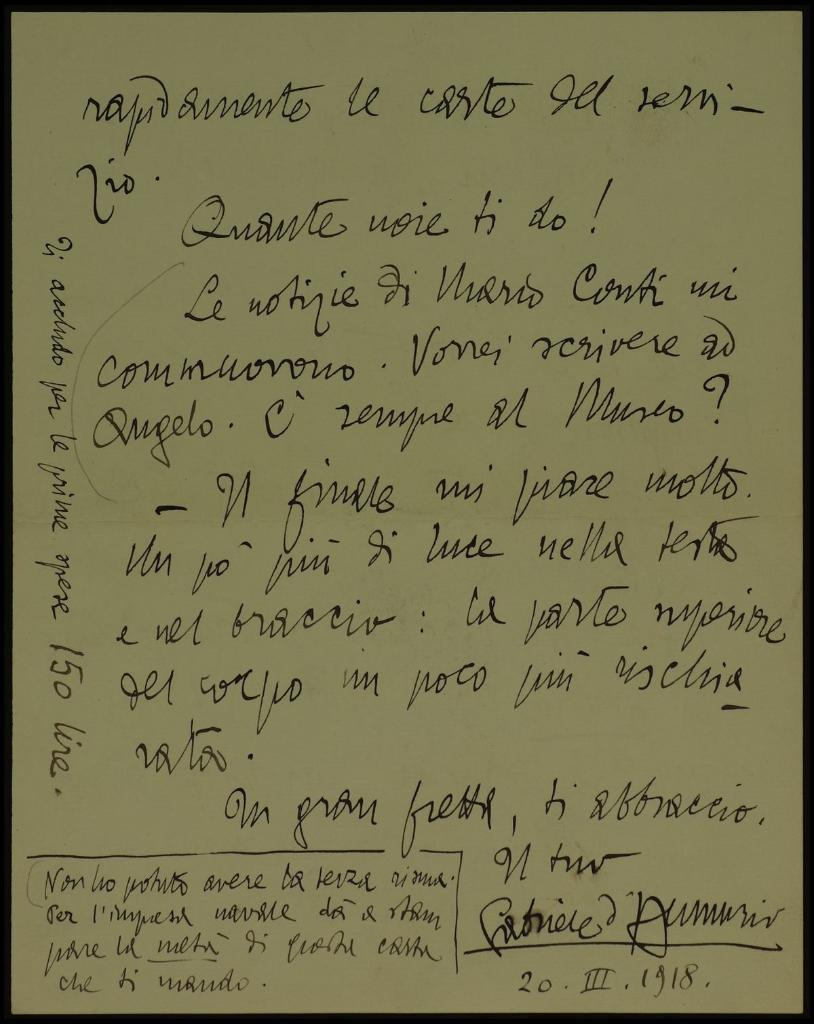 rapidamente le carte del servi-
zio.
Quante noie ti do!
Le notizie di Mario Conti mi
commuovono. Vorrei scrivere ad
Angelo. È sempre al Museo?
– Il finale mi piace molto.
Un pò più di luce nella testa
e nel braccio: la parte superiore
del corpo un poco più rischia
rata.
In gran fretta, ti abbraccio.
Il tuo
Gabriele d'Annunzio
20. III. 1918.
Non ho potuto avere la terza risma.
Per l'impresa navale dà a stam
pare la metà di questa carta
che ti mando.
Ti accludo per le prime spese 150 lire.